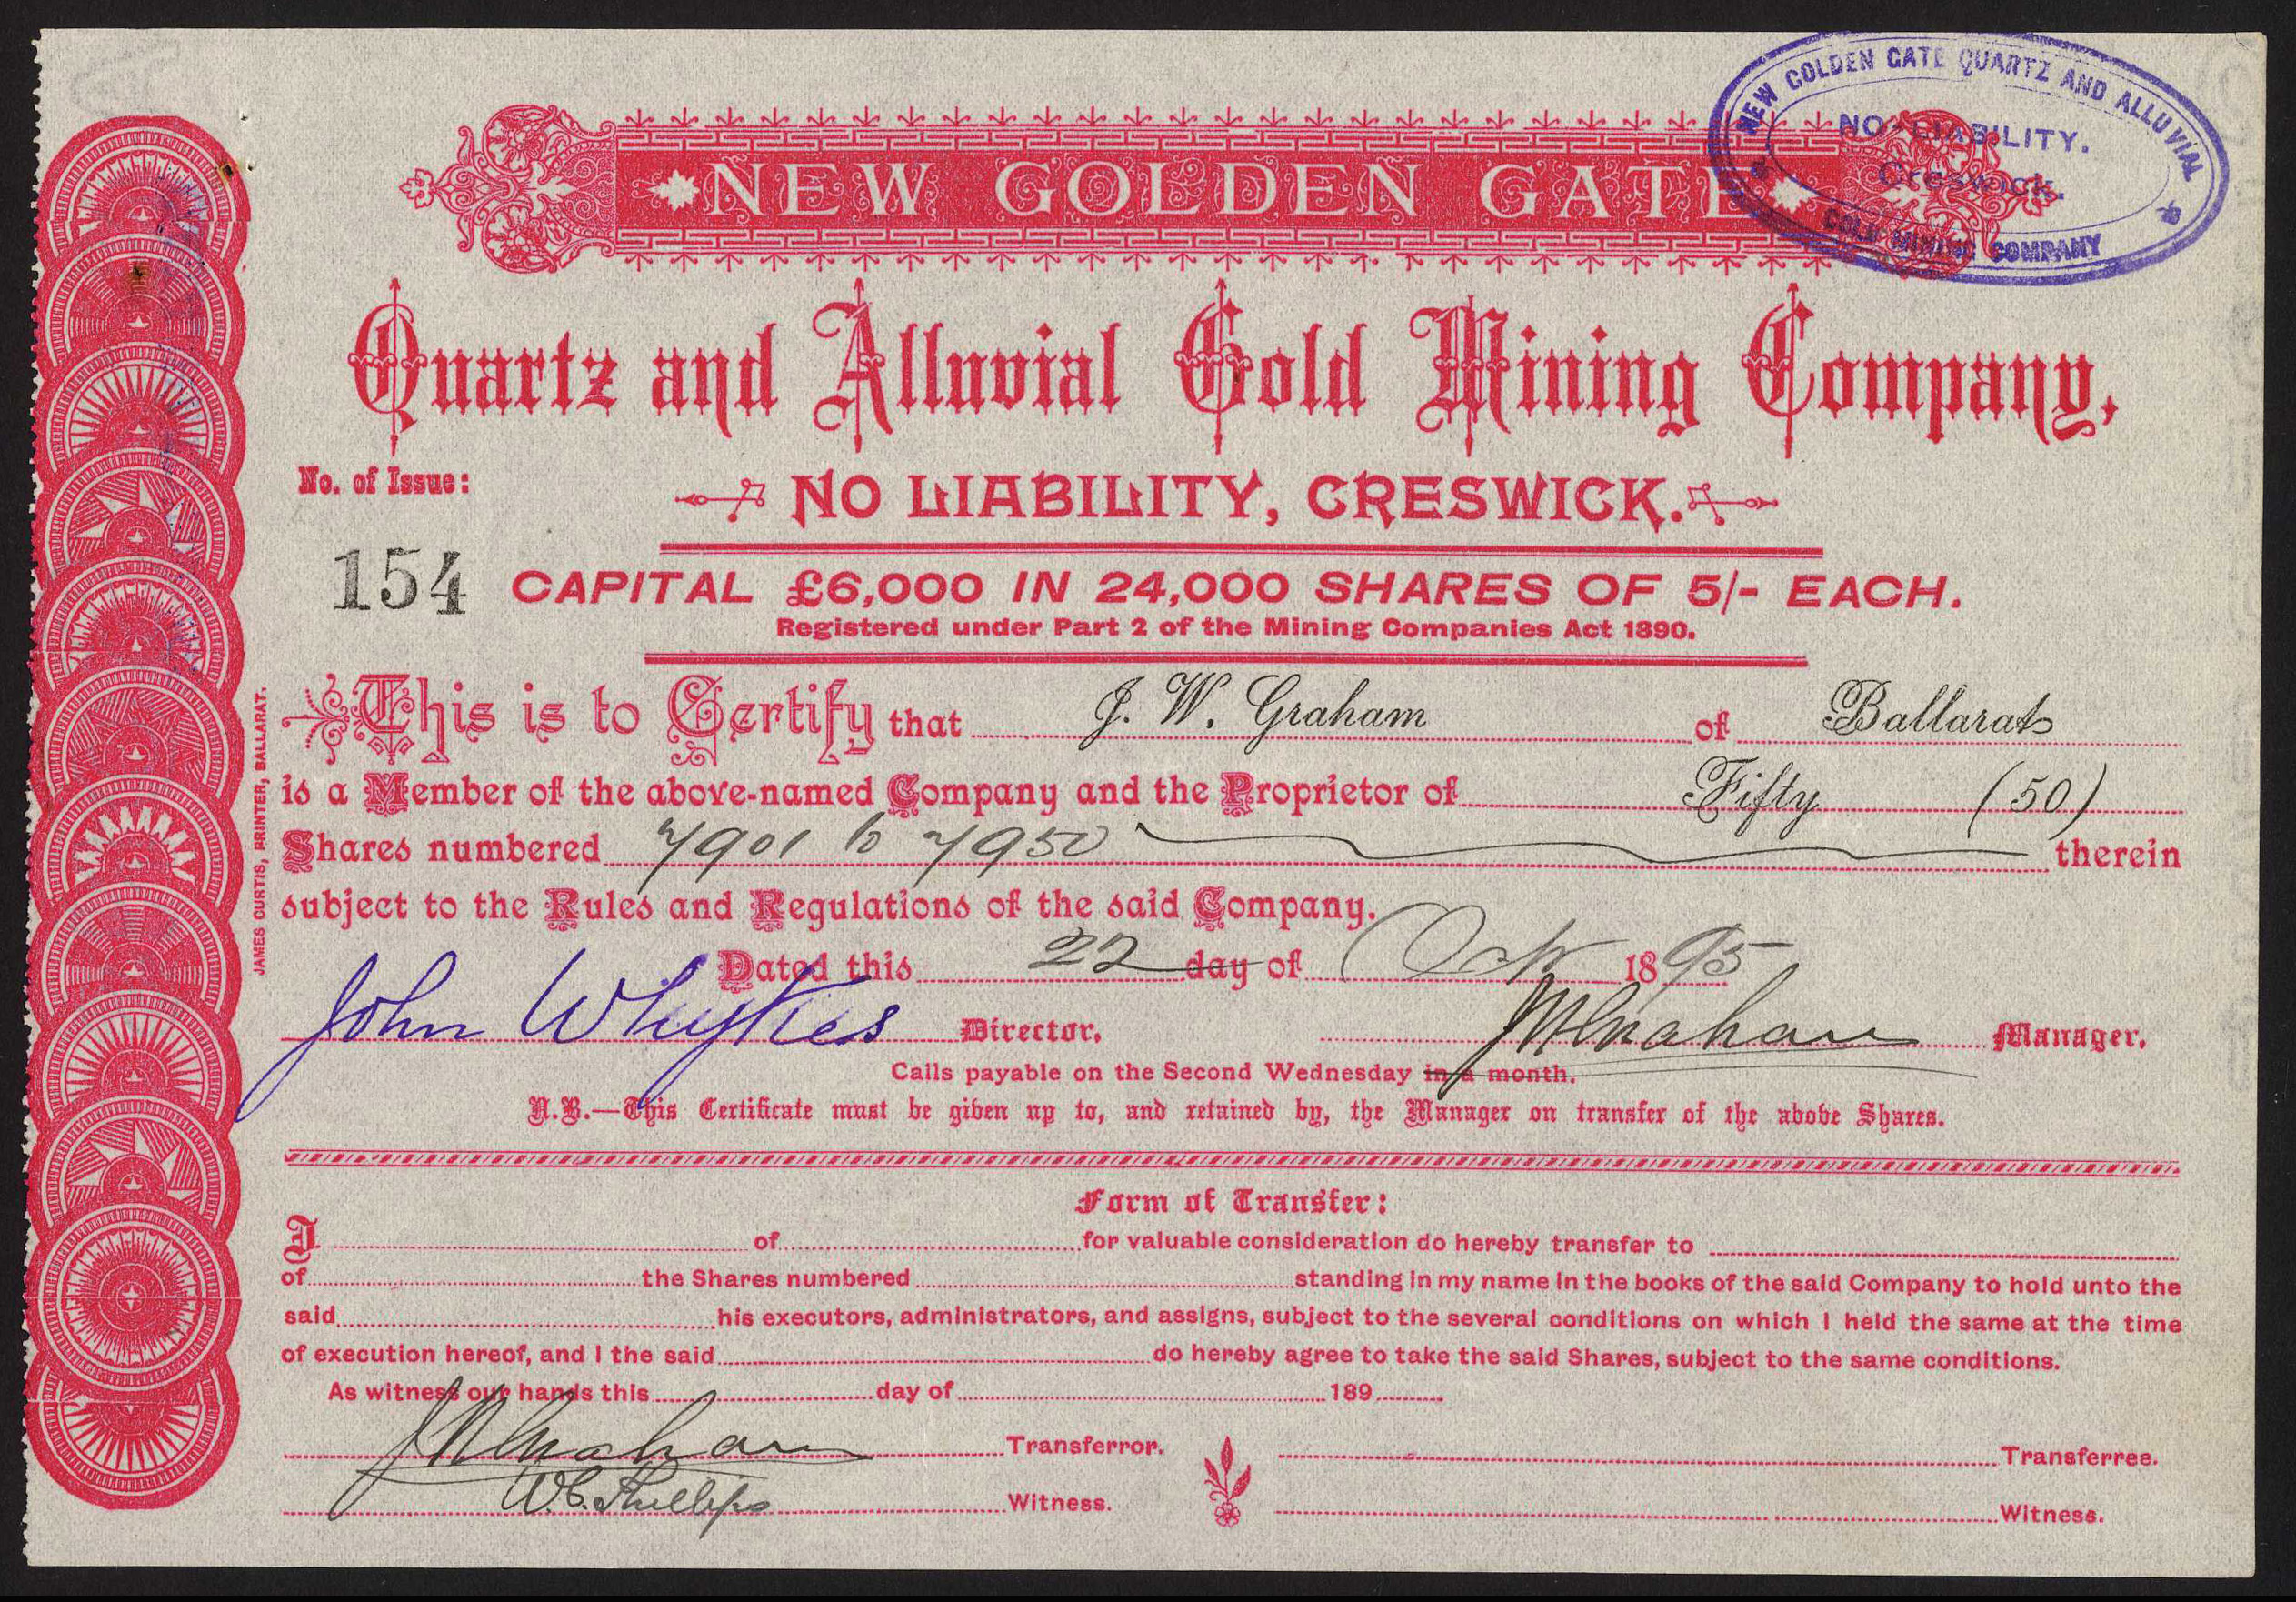 NEW GOLDEN GATE QUARTZ AND ALLUVIAL
NO-LIABILITY.
Creswick.
GOLD MINING COMPANY
NEW GOLDEN GATE
Quartz and Alluvial Gold Mining Company,
No. of Issue:
NO LIABILITY, CRESWICK.
154
CAPITAL £6,000 IN 24,000 SHARES OF 5/- EACH.
Registered under Part 2 of the Mining Companies Act 1890.
This is to Certify that J. W. Graham of Ballarat
is a Member of the above-named Company and the Proprietor of Fifty (50)
Shares numbered 7901 to 7950 therein
subject to the Rules and Regulations of the said Company.
Dated this 22 day of Oct 1895
John Director.
JWGraham Manager.
Calls payable on the Second Wednesday in a month.
N.B.—This Certificate must be given up to, and retained by, the Manager on transfer of the above Shares.
JAMES CURTIS, PRINTER, BALLARAT.
Form of Transfer:
I of for valuable consideration do hereby transfer to
of the Shares numbered standing in my name in the books of the said Company to hold unto the
said his executors, administrators, and assigns, subject to the several conditions on which I held the same at the time
of execution hereof, and I the said do hereby agree to take the said Shares, subject to the same conditions.
As witness our hands this day of 189
JWGraham Transferror. Transferree.
W. C. Phillips Witness. Witness.